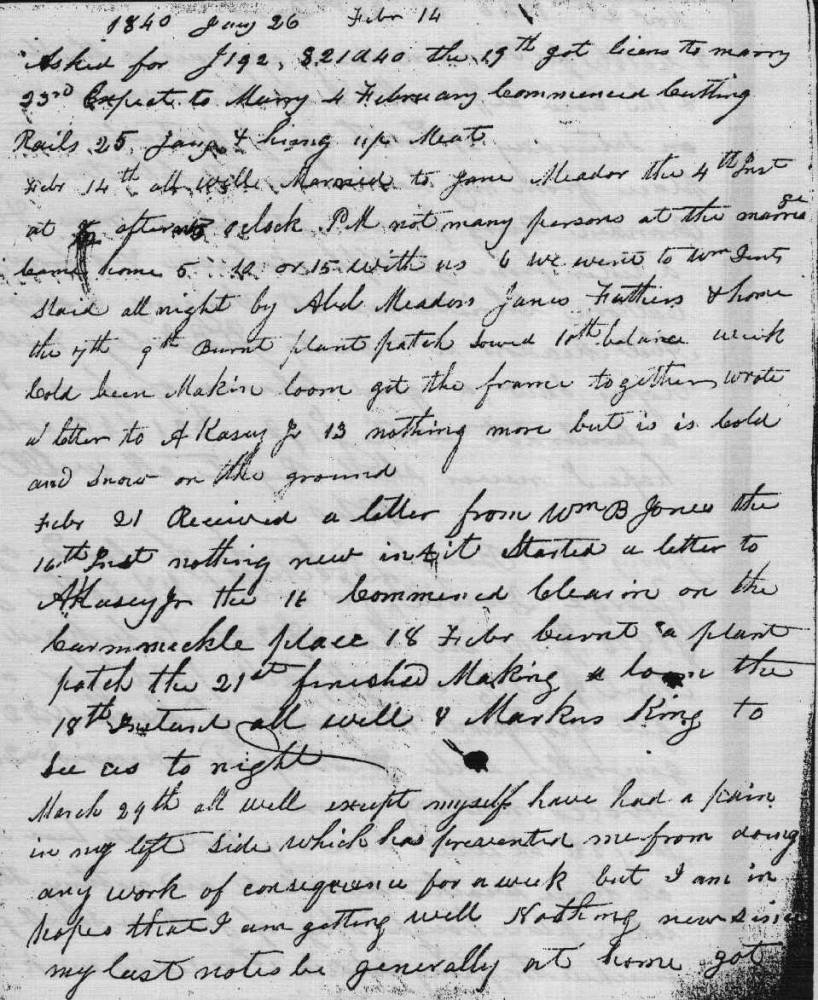 1840 Jany 26 Febr 14
Asked for J 192, 821040 the 19th got licens to marry
23rd Expect to Marry 4 February Commenced Cutting
Rails 25 Jany & hung up Meat
Febr 14th all well Married to Jane Meador the 4th Inst
at after oclock PM not many persons at the marrige
Came home 5 12 or 15 with us 6 we went to Wm
Staid all night by Abel Meadors Janes Fathers & home
the 7th 9th Burnt plant patch sowed 10th balance week
Cold been Makin loom got the frame together wrote
a letter to A Kasey Jr 13 nothing more but is is Cold
and Snow on the ground
Febr 21 Received a letter from Wm B Jones the
16th Inst nothing new in it Started a letter to
A Kasey Jr the 16 Commencd Clearin on the
Carmmeckle place 18 Febr burnt a plant
patch the 21st finished Making a loom the
18th Instand all well & Markus King to
See us to night
March 29th all well except myself have had a pain
in my left Side which has prevented me from doing
any work of consequence for a week but I am in
hopes that I am getting well Nothing new since
my last notes be generally at home got